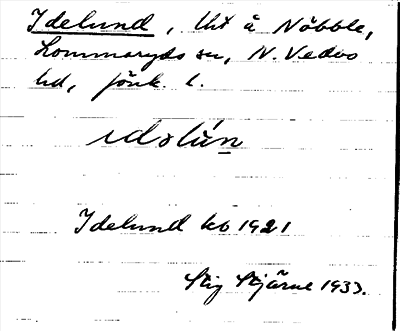 Idelund, lht å Nöbble,
Lommaryds sn, N. Vedbo
hd, Jönk. l.
idəlún
Idelund kb 1921
Stig Stjärne 1933.